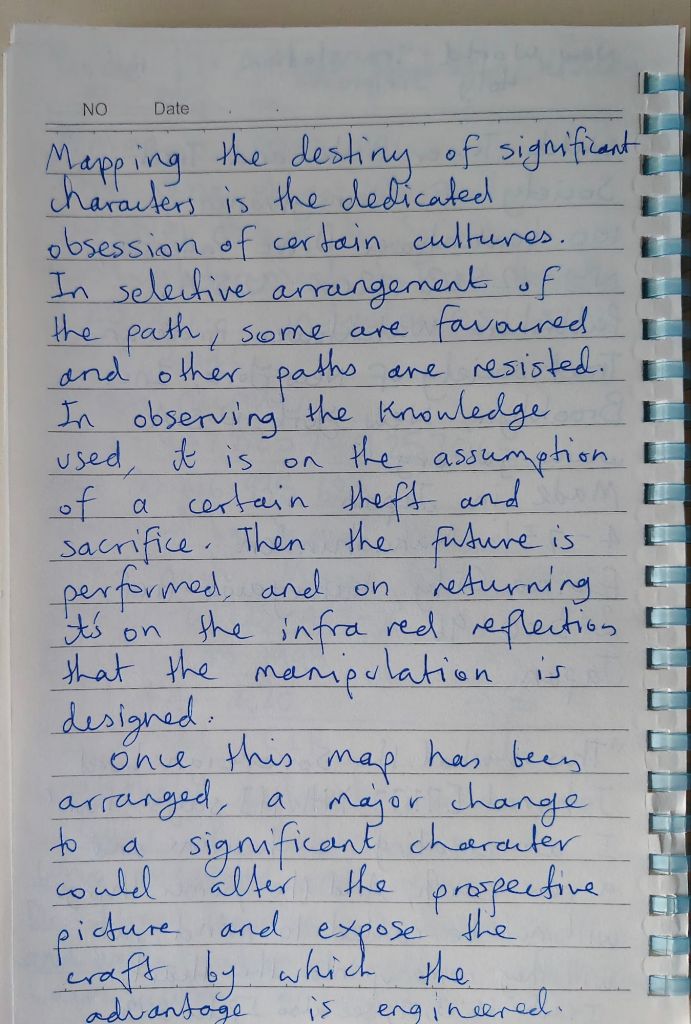 NO Date . .
Mapping the destiny of significant
characters is the dedicated
obsession of certain cultures.
In selective arrangement of
the path, some are favoured
and other paths are resisted.
In observing the knowledge
used, it is on the assumption
of a certain theft and
sacrifice. Then the future is
performed, and on returning
it's on the infra red reflection
that the manipulation is
designed.
Once this map has been
arranged, a major change
to a significant character
could alter the prospective
picture and expose the
craft by which the
advantage is engineered.